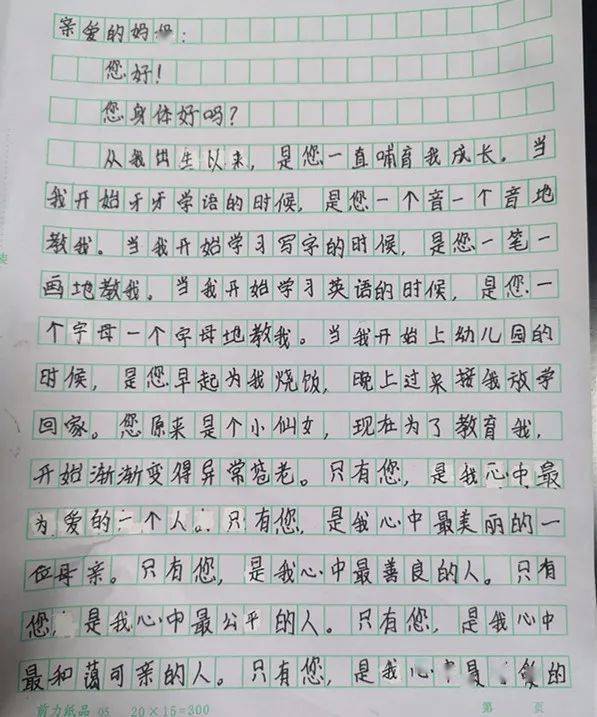 亲爱的妈妈：
您好！
您身体好吗？
从我出生以来，是您一直哺育我成长。当
我开始牙牙学语的时候，是您一个音一个音地
教我。当我开始学习写字的时候，是您一笔一
画地教我。当我开始学习英语的时候，是您一
个字母一个字母地教我。当我开始上幼儿园的
时候，是您早起为我烧饭，晚上过来接我放学
回家。您原来是个小仙女，现在为了教育我，
开始渐渐变得异常苍老。只有您，是我心中最
为爱的一个人。只有您，是我心中最美丽的一
位母亲。只有您，是我心中最善良的人。只有
您，是我心中最公平的人。只有您，是我心中
最和蔼可亲的人。只有您，是我心中最爱的
剪力纸品 05 20×15=300 第 页